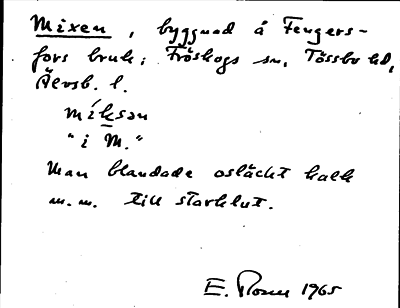 Mixen, byggnad å Fengers-
fors bruk; Fröskogs sn, Tössbo hd,
Älvsb. l.
míksən
"i M."
Man blandade osläckt kalk
m.m. till starklut.
E. 1965